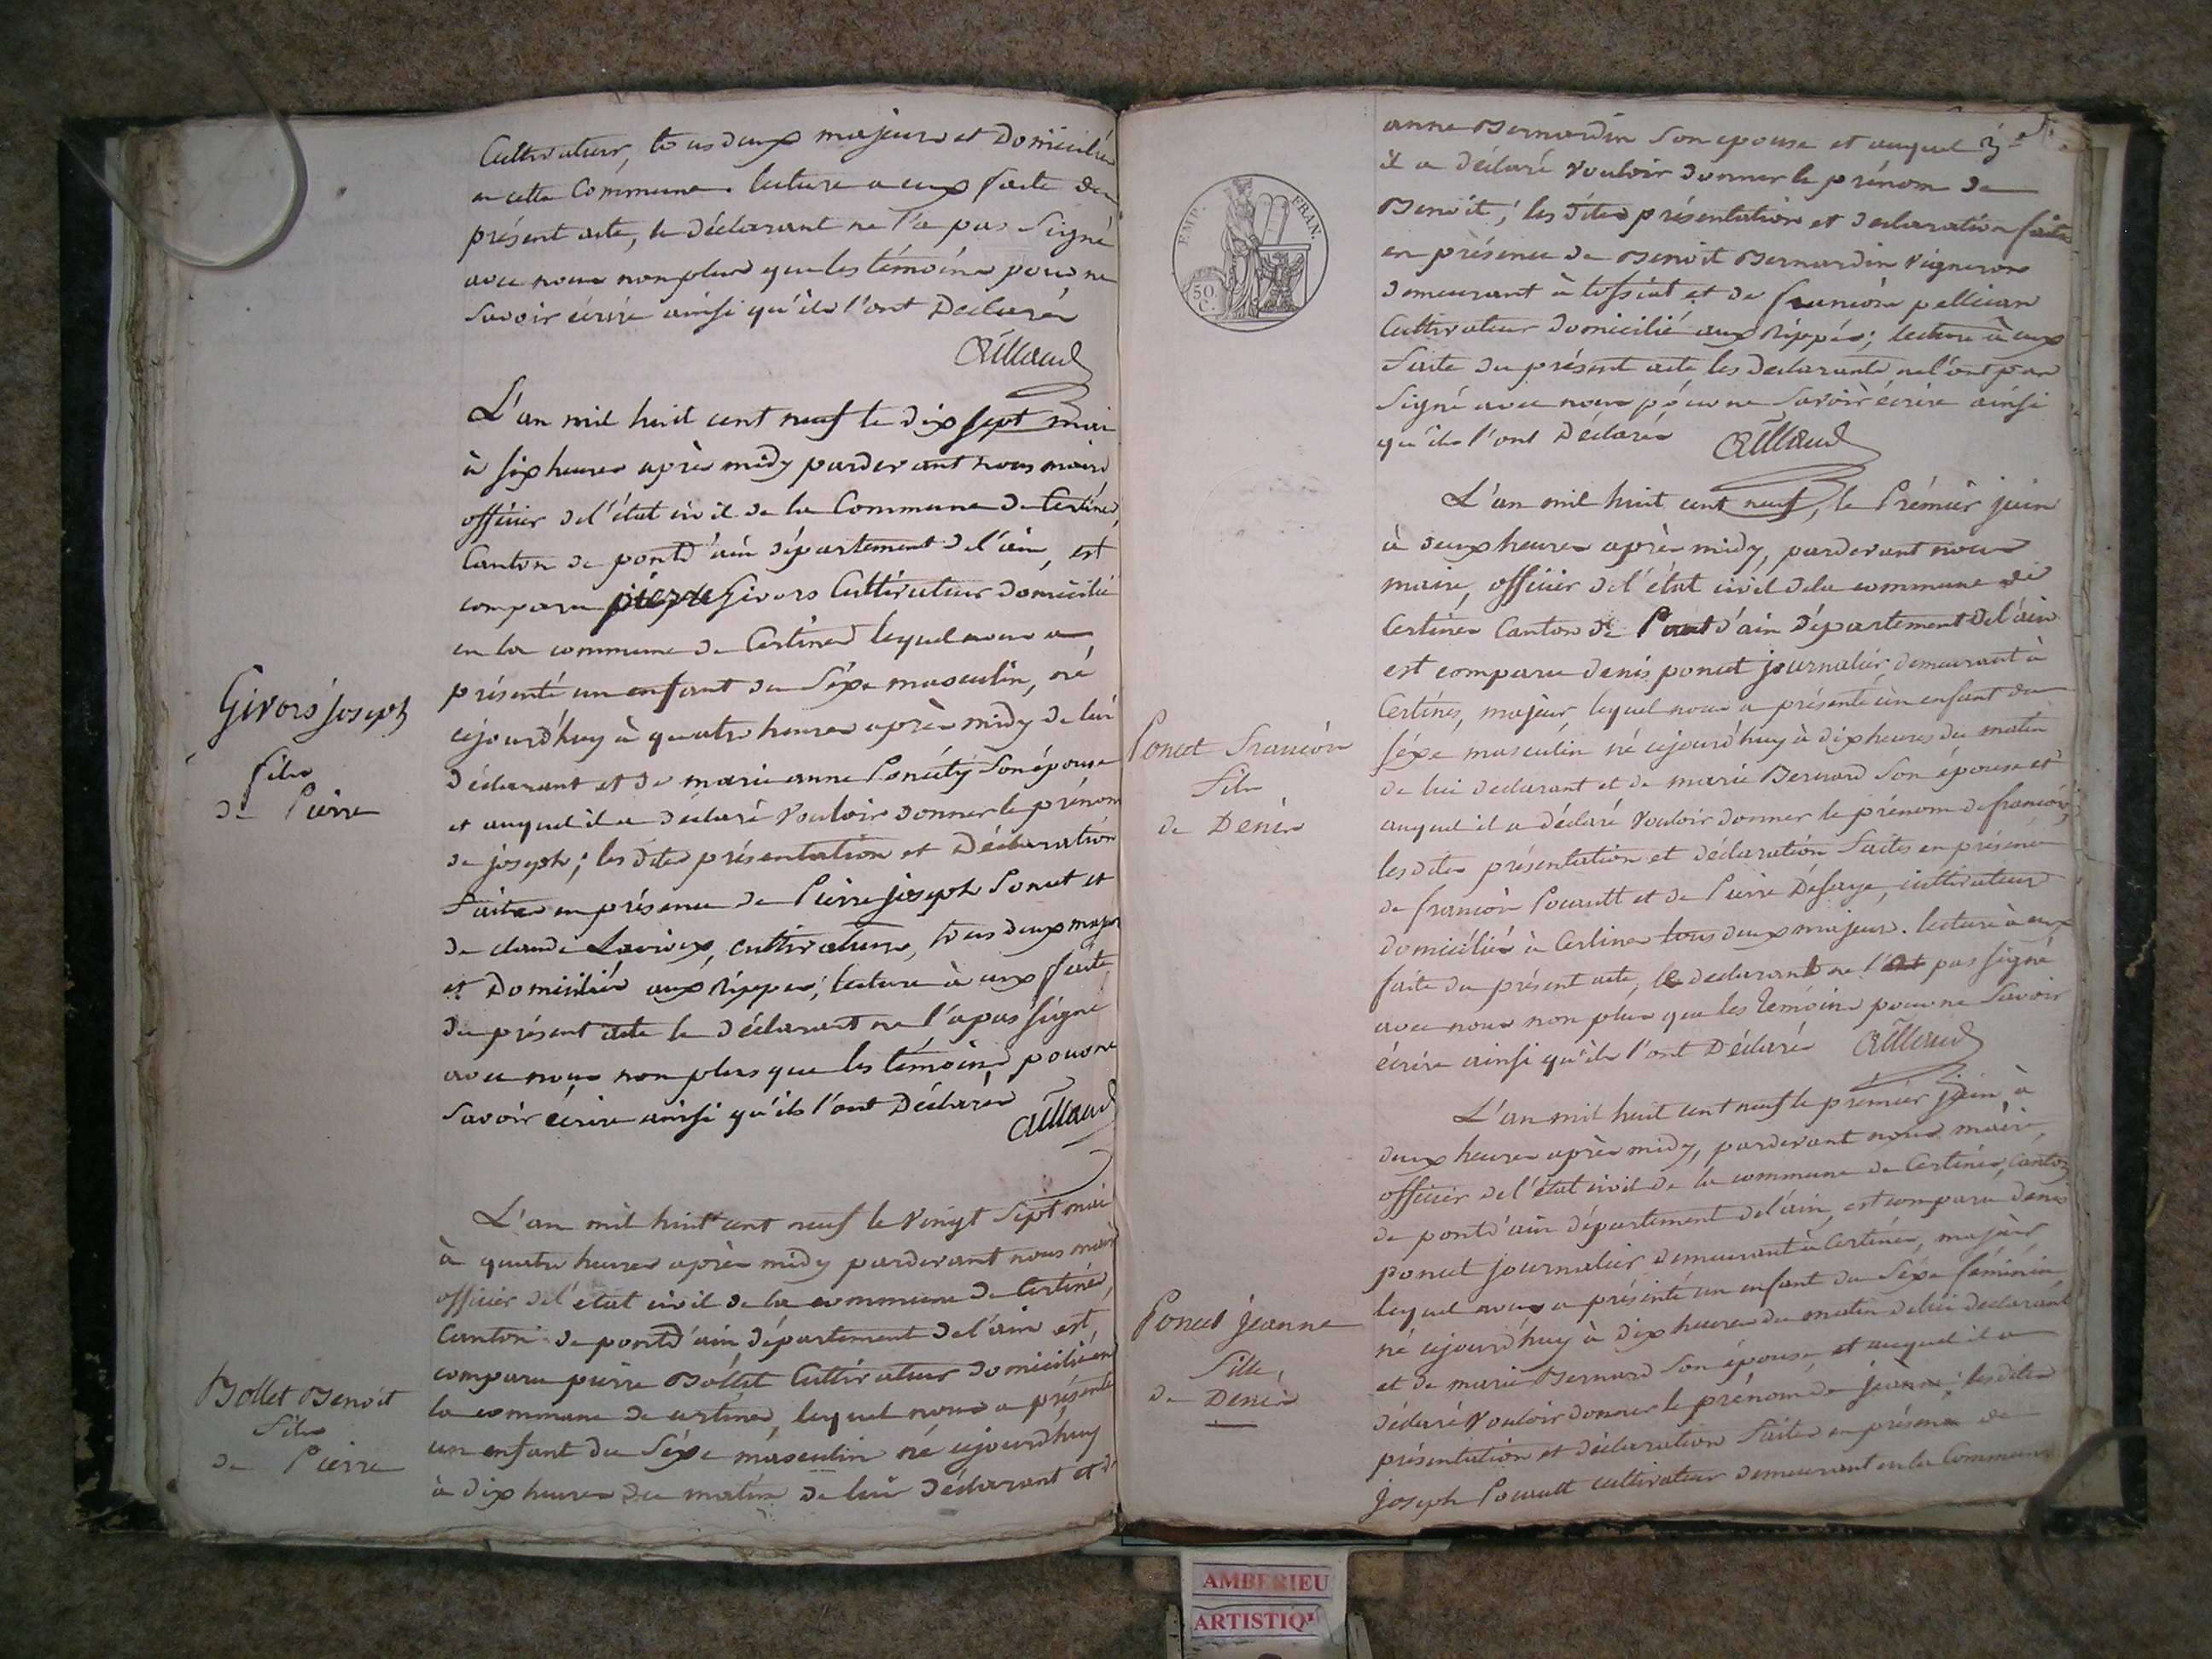 Cultivateur, tous deux majeurs et Domiciliés
en cette Commune. lecture a eux faite du
présent acte, le déclarant ne l'a pas Signé
avec nous non plus que les témoins pour ne
Savoir écrire ainsi qu'ils l'ont Déclarés
L'an mil huit cent neuf le dix sept mai
à six heures après midy pardevant nous maire
officier de l'état civil de la Commune de Certines,
Canton de pontd'ain département de l'ain, est
comparu pierre Givors Cultivateur domicilié
en la commune de Certines lequel nous a
présenté un enfant du Séxe masculin, né
cejourd'huy à quatre heures après midy de lui
déclarant et de marie anne Son épouse
et auquel il a déclaré Vouloir donner le prénom
de joseph; les dites présentation et Déclaration
Faites en présence de Pierre joseph Poncet et
de claude cultivateurs, tous deux majeurs
et Domiciliés aux Rippes; lecture à eux faite
du présent acte le déclarant ne l'a pas Signé
avec nous non plus que les témoins pour ne
Savoir écrire ainsi qu'ils l'ont Déclarés
Givors joseph
fils
de Pierre
L'an mil huit cent neuf le Vingt Sept mai
à quatre heures après midy pardevant nous maire
officier de l'état civil de la commune de Certines,
Canton de pontd'ain, département de l'ain est
comparu pierre Bollet Cultivateur domicilié en
la commune de certines, lequel nous a présenté
un enfant du Séxe masculin né cejourd'huy
à dix heures du matin de lui déclarant et d'
Bollet Benoit
Fils
de Pierre
anne Bernardin Son epouse et auquel
il a déclaré Vouloir donner le prénom de
Benoit; les dites présentation et declaration faites
en présence de Benoit Bernardin Vigneron
demeurant à tossiat et de françois pellican
Cultivateur domicilié aux Rippes; lecture à eux
Faite du présent acte les declarants ne l'ont pas
Signé avec nous pour ne Savoir écrire ainsi
qu'ils l'ont Déclarés
EMP. FRAN.
50
C.
L'an mil huit cent neuf, le Prémier juin
à deux heures après midy, pardevant nous
maire, officier de l'état civil de la commune de
Certines Canton de Pont d'ain département de l'ain
est comparu denis poncet journalier demeurant à
Certines, majeur, lequel nous a présenté un enfant du
séxe masculin né cejourd'huy à dix heures du matin
de lui declarant et de marie Bernard Son épouse et
auquel il a déclaré Vouloir donner le prénom de françois;
les dites présentation et déclaration Faites en présence
de françois et de Pierre cultivateurs
domiciliés à Certines tous deux majeurs. lecture à eux
faite du présent acte, le declarant ne l'a pas signé
avec nous non plus que les temoins pour ne Savoir
écrire ainsi qu'ils l'ont Déclarés
Poncet François
Fils
de Denis
L'an mil huit cent neuf le prémier juin à
deux heures après midy, pardevant nous maire,
officier de l'état civil de la commune de Certines, Canton
de pontd'ain département de l'ain, est comparu denis
poncet journalier demeurant à Certines, majeur
lequel nous a présenté un enfant du Séxe féminin
né cejourd'huy à dix heures du matin de lui declarant
et de marie Bernard Son épouse et auquel il a
déclaré Vouloir donner le prénom de jeanne; les dites
présentation et déclaration Faites en présence de
joseph cultivateur demeurant en la Commune
Poncet jeanne
Fille
de Denis
AMBERIEU
ARTISTIQU